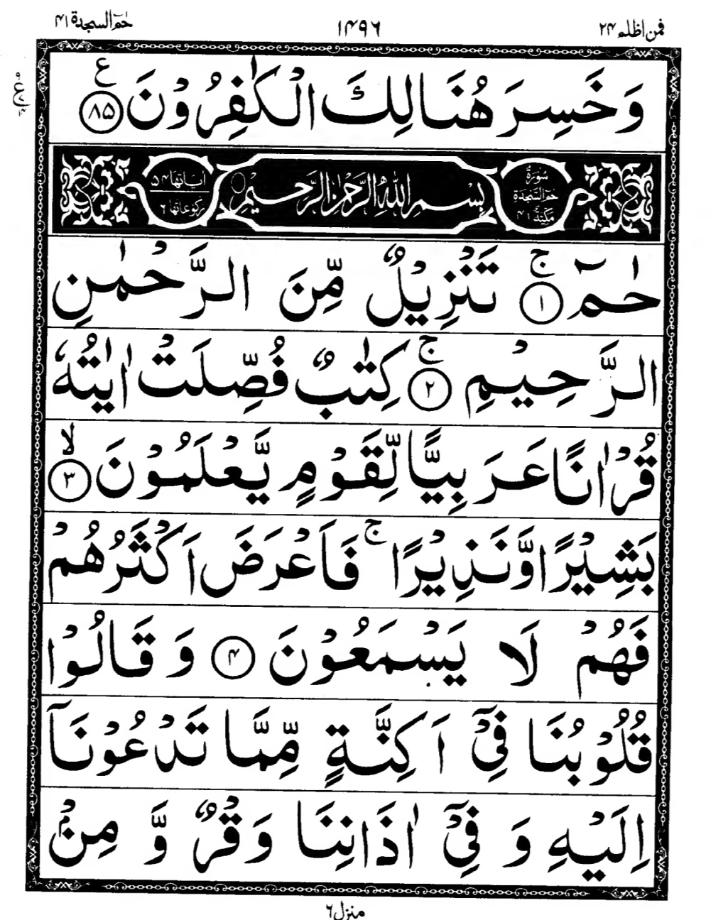 فمن اظلم ۲۴
۱۴۹۶
حٰمٓ السجدة ۴۱
وَخَسِرَ هُنَالِكَ الْكٰفِرُوْنَ ۸۵ ع
سُوْرَةُ حٰمٓ السَّجْدَةِ مَكِّيَّةٌ ۴۱
بِسْمِ اللّٰهِ الرَّحْمٰنِ الرَّحِيْمِ
اٰیاتها ۵۴
رکوعاتها ۶
حٰمٓ ۚ ۱ تَنْزِيْلٌ مِّنَ الرَّحْمٰنِ
الرَّحِيْمِ ۚ ۲ كِتٰبٌ فُصِّلَتْ اٰيٰتُهٗ
قُرْاٰنًا عَرَبِيًّا لِّقَوْمٍ يَّعْلَمُوْنَ ۙ ۳
بَشِيْرًا وَّنَذِيْرًا ۚ فَاَعْرَضَ اَكْثَرُهُمْ
فَهُمْ لَا يَسْمَعُوْنَ ۴ وَ قَالُوْا
قُلُوْبُنَا فِيْۤ اَكِنَّةٍ مِّمَّا تَدْعُوْنَاۤ
اِلَيْهِ وَ فِيْۤ اٰذَانِنَا وَقْرٌ وَّ مِنْۢ
منزل ۶